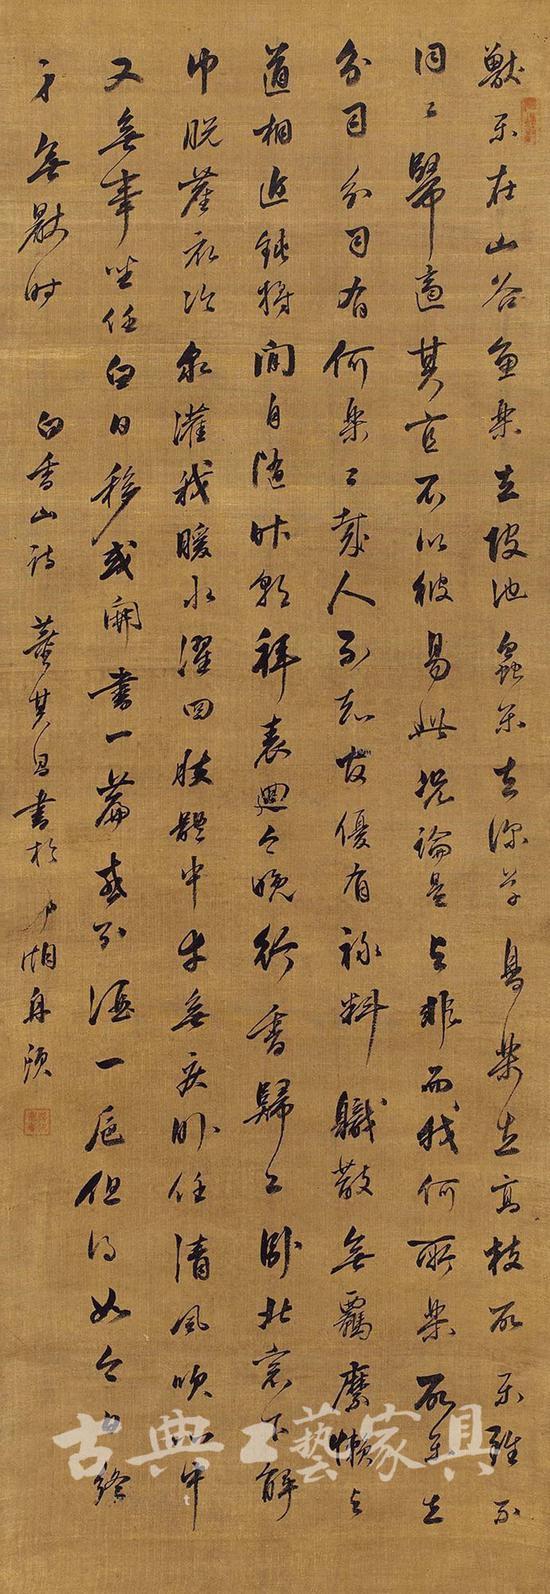 獸樂在山谷魚樂在陂池蟲樂在深草鳥樂在高枝所樂雖不
同〻歸適其宜不以彼易此況論是與非而我何所樂所樂在
分司分司有何樂〻哉人不知官優有祿料職散無羈縻懶與
道相近鈍將閒自隨昨朝拜表迴今晚行香歸〻臥北窗下解
巾脫塵衣冷泉灌我暖水濯四肢體中幸無疾臥任清風吹心中
又無事坐任白日移或開書一篇或酒一卮但得如今日終
身無厭時 白香山詩 董其昌書於湖舟
古典工藝家具